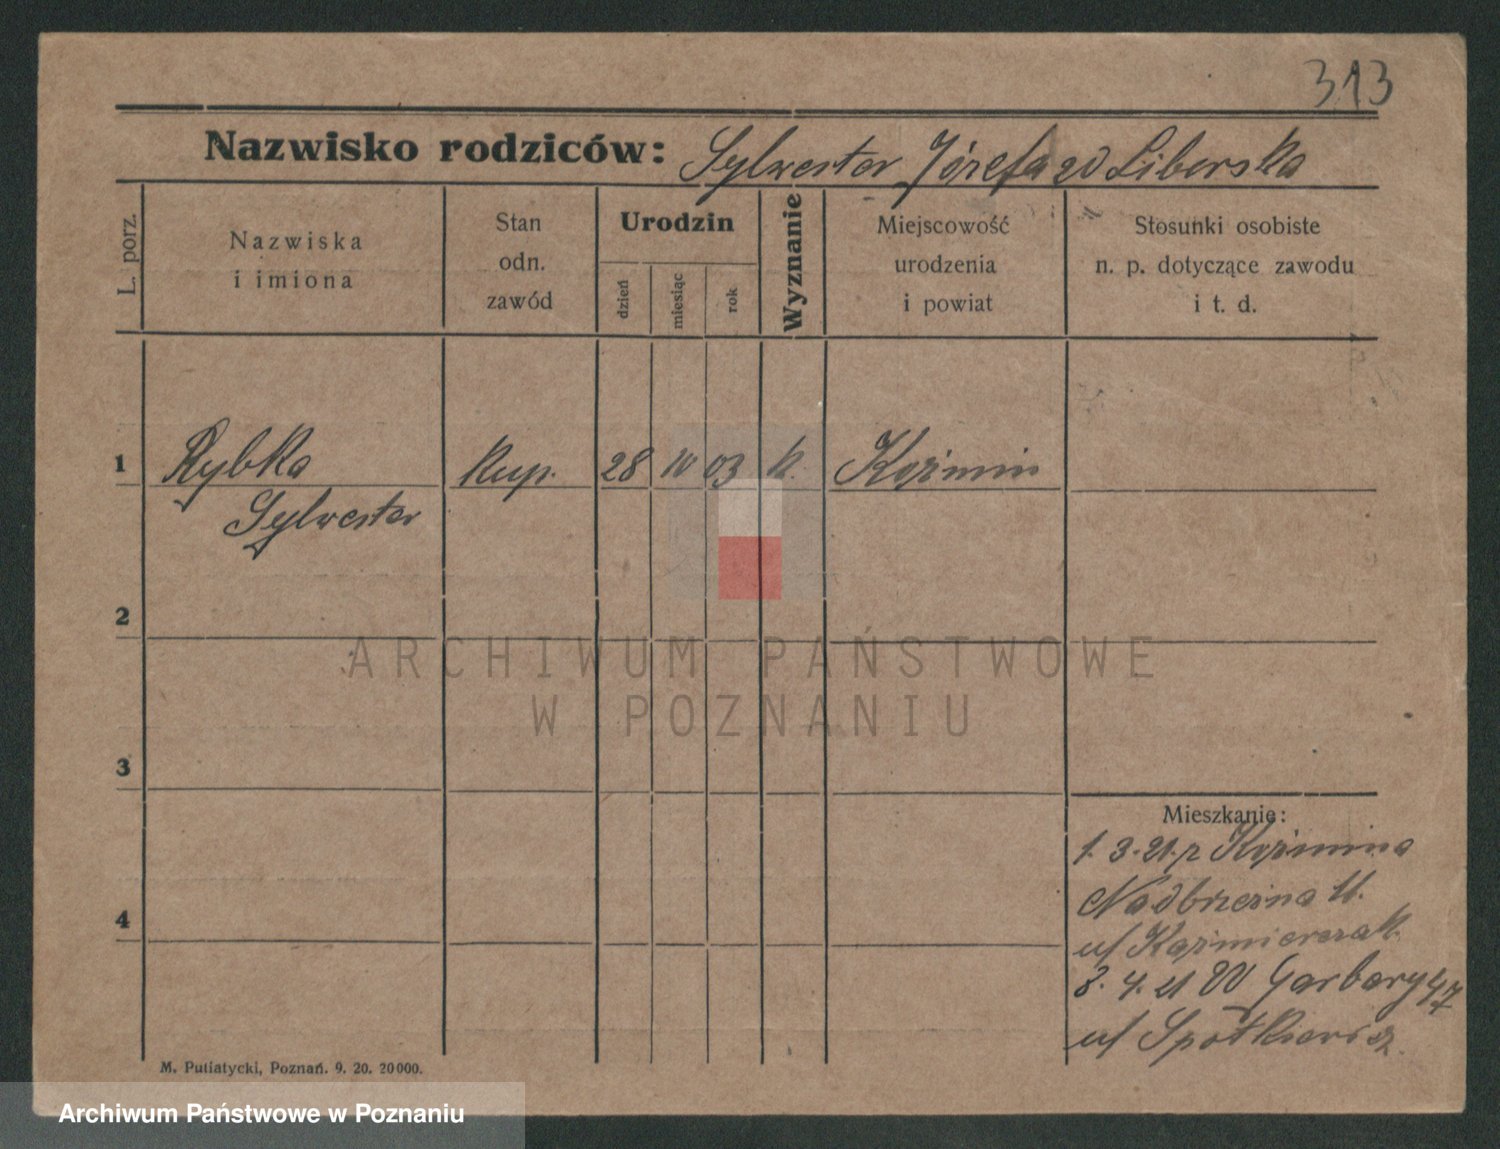 313
Nazwisko rodziców: Sylwester Józefa zd Liberska
L. porz.
Nazwiska
i imiona
Stan
odn.
zawód
Urodzin
dzień
miesiąc
rok
Wyznanie
Miejscowość
urodzenia
i powiat
Stosunki osobiste
n. p. dotyczące zawodu
i t. d.
1 Rybka kup. 28 10 03 k. Koźmin
Sylwester
2
3
4
ARCHIWUM PAŃSTWOWE
W POZNANIU
Mieszkanie:
1. 3. 21. z Koźmina
Nadbrzeżna 11.
u/ Kaźmierczak.
3. 4. 21 W Garbary 47
u/ Spotkiewicz.
M. Putiatycki, Poznań. 9. 20. 20 000.
Archiwum Państwowe w Poznaniu